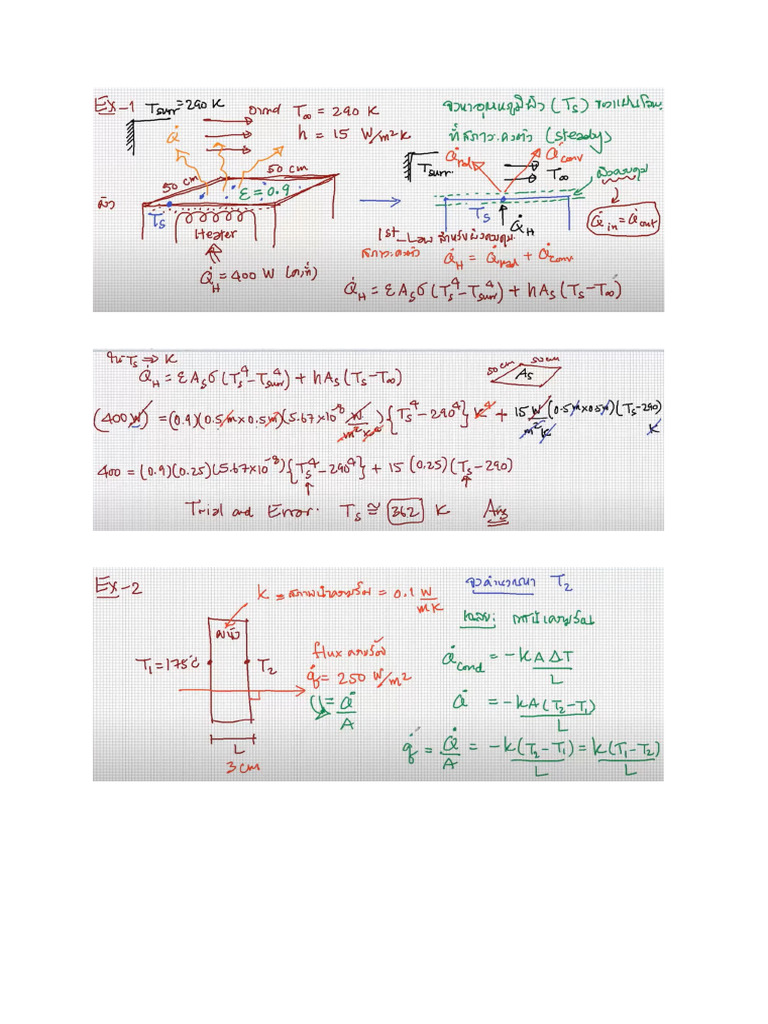 Ex-1 Tsurr = 290 K อากาศ T∞ = 290 K
h = 15 W/m²K
Q̇
50 cm 50 cm
ผิว ε = 0.9
Ts
Heater
Q̇H = 400 W (คงที่)
จงหาอุณหภูมิผิว (Ts) ของแผ่นโลหะ
ที่สภาวะคงตัว (steady)
Q̇rad Q̇conv
Tsurr T∞
ผิวควบคุม
Ts Q̇H
Q̇in = Q̇out
1st-Law สำหรับผิวควบคุม
สภาวะคงตัว Q̇H = Q̇rad + Q̇conv
Q̇H = εAsσ(Ts⁴ - Tsurr⁴) + hAs(Ts - T∞)
Ts ⇒ K
Q̇H = εAsσ(Ts⁴ - Tsurr⁴) + hAs(Ts - T∞)
50 cm 50 cm
As
(400W) = (0.9)(0.5m×0.5m)(5.67×10⁻⁸ W/m²K⁴){Ts⁴ - 290⁴}K⁴ + 15 W/m²K (0.5m×0.5m)(Ts-290)K
400 = (0.9)(0.25)(5.67×10⁻⁸){Ts⁴ - 290⁴} + 15(0.25)(Ts - 290)
Trial and Error. Ts ≅ 362 K Ans
Ex-2
k = สภาพนำความร้อน = 0.1 W/mK
ผนัง
T1 = 175°C T2
flux ความร้อน
q̇ = 250 W/m²
= Q̇/A
L
3 cm
จงคำนวณหา T2
เฉลย: การนำความร้อน
Q̇cond = -kAΔT/L
Q̇ = -kA(T2-T1)/L
q̇ = Q̇/A = -k(T2-T1)/L = k(T1-T2)/L